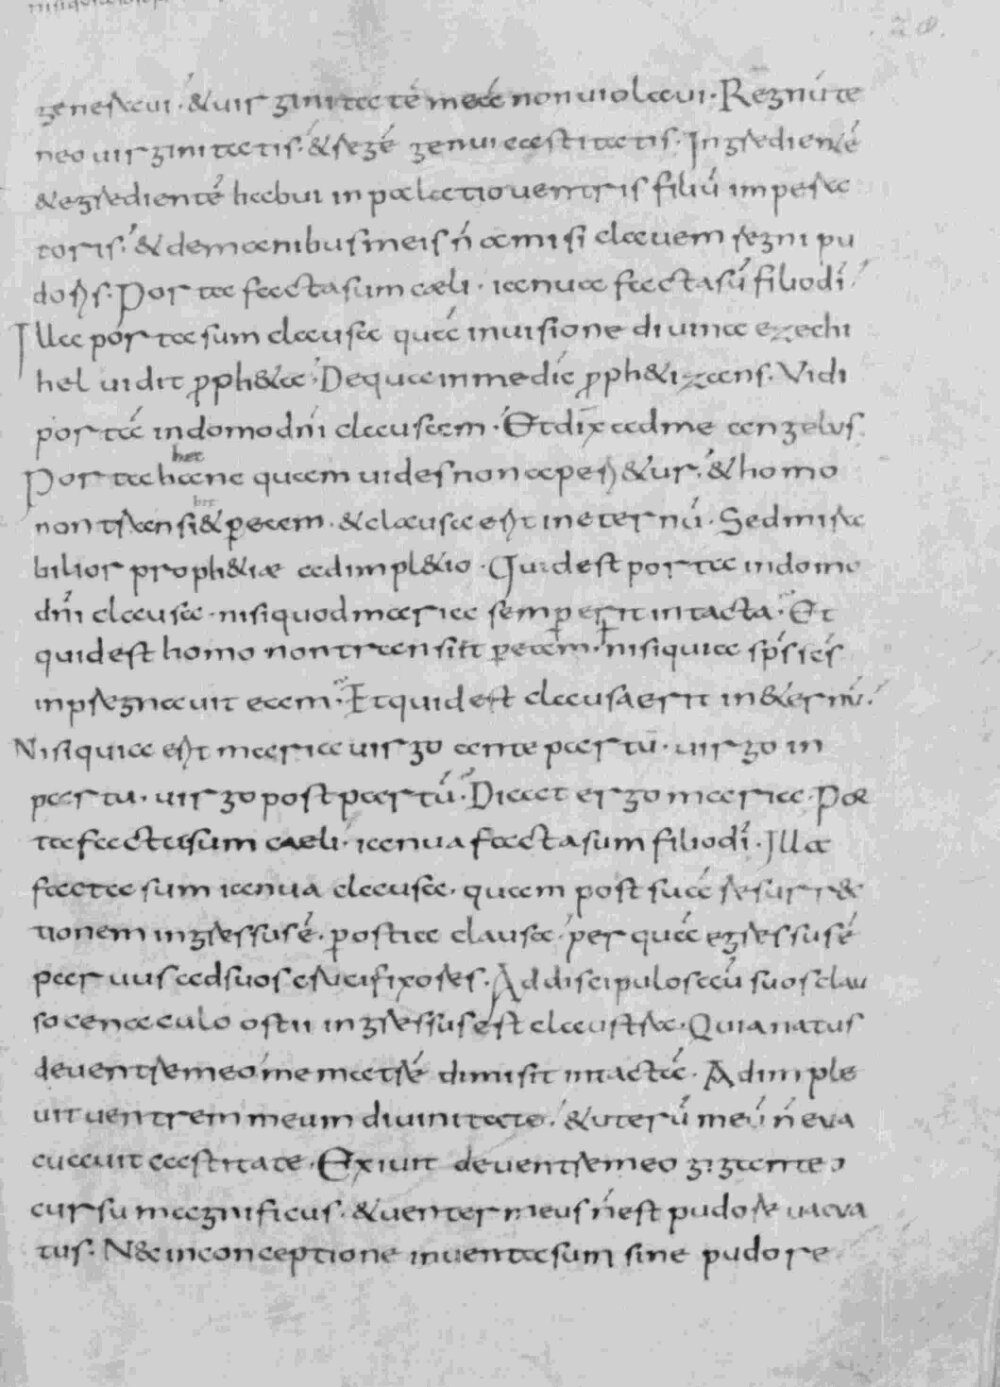 generaui · & uirginitatē meā non uiolaui · Regnū te
neo uirginitatis · & regē genui castitatis · Ingredientē
& egredientē habui in palatio uentris filiū impera
toris · & demanibus meis ń amisi clauem regni pu
doris · Porta facta sum cæli · ianua facta sū filio dī ·
Illa porta sum clausa quā in uisione diuina ezechi
hel uidit pph&a · De qua in me dic pph&izans · Vidi
portā in domo dn̄i clausam · Et dix̄ ad me angelus
het
Porta hanc quam uides non aperi&ur · & homo
bit
non transi& p eam · & clausa erit in eternū · Sed mira
bilior proph&iæ adimpl&io · Quid est porta in domo
dn̄i clausa · nisi quod maria semper erit intacta · Et
quid est homo non transi&t p eam · nisi quia sp̄s scs
inpregnauit eam · Et quid est clausa erit in &ernū ·
Nisi quia erit maria uirgo ante partū · uirgo in
partu · uirgo post partū · Dicat ergo maria · Por
ta facta sum caeli · ianua facta sum filio dī · Illa
facta sum ianua clausa · quam post suā resurr&
tionem ingressus ē · postia clausa · per quā egressus ē
paruus ad suos crucifixores · Ad discipulos aū suos clau
so cenaculo ostii ingressus est claustra · Quia natus
de uentre meo me matrē dimisit intactā · Adimple
uit uentrem meum diuinitate · & uterū meū ń eua
cuauit castitate · Exiuit de uentre meo gigante
cursu magnificus · & uenter meus ń est pudore uacua
tus · N& in conceptione inuenta sum sine pudore